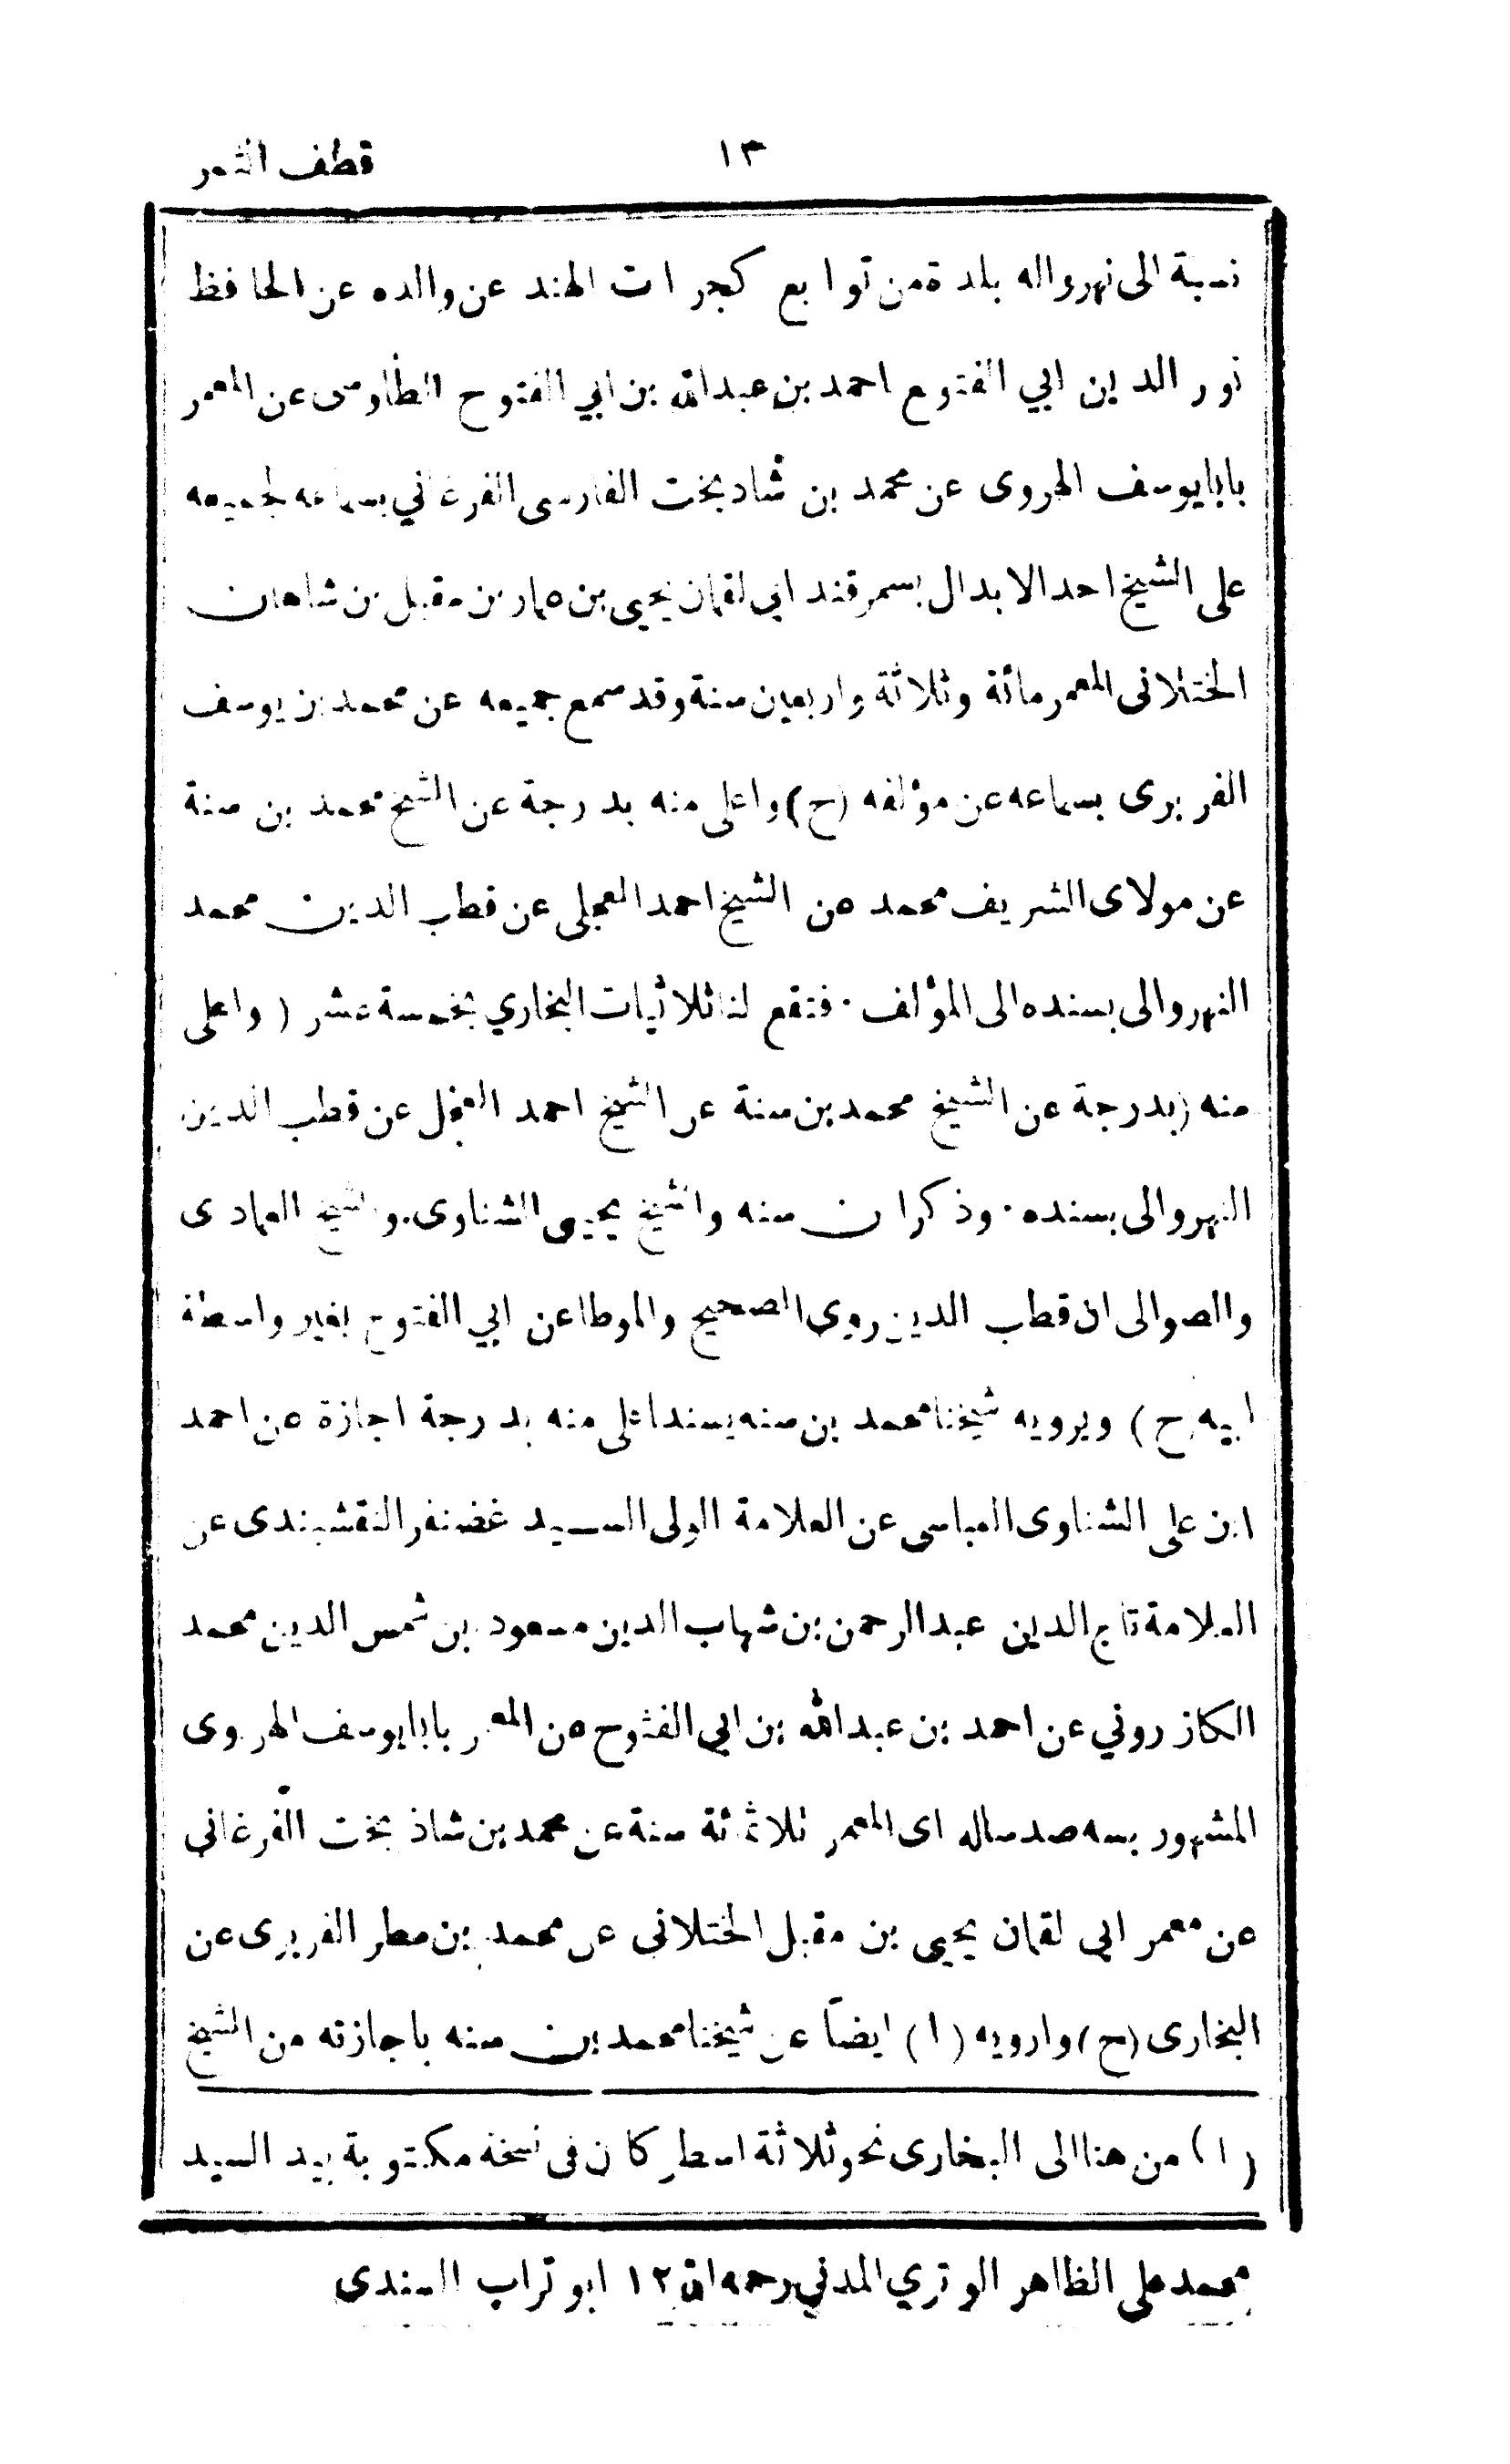 ١٣ قطف الثمر
نسبة الى نهرواله بلدة من توابع كجرات الهند عن والده عن الحافظ
نور الدين ابي الفتوح احمد بن عبدالله بن ابي الفتوح الطاوسى عن المعمر
بابا يوسف الهروى عن محمد بن شاد بخت الفارسى الفرغاني بسماعه لجميعه
على الشيخ احد الابدال بسمرقند ابي لقمان يحيى بن عمار بن مقبل بن شاهان
الختلانى المعمر مائة وثلاثة واربعين سنة وقد سمع جميعه عن محمد بن يوسف
الفربرى بسماعه عن مؤلفه (ح) واعلى منه بدرجة عن الشيخ محمد بن سنة
عن مولاى الشريف محمد عن الشيخ احمد العجلى عن قطب الدين محمد
النهروالى بسنده الى المؤلف · فتقع لنا ثلاثيات البخاري بخمسة عشر (واعلى
منه) بدرجة عن الشيخ محمد بن سنة عن الشيخ احمد العجل عن قطب الدين
النهروالى بسنده · وذكر ان سنه والشيخ يحيى الشناوى. والشيخ العمادى
والصوالى ان قطب الدين روى الصحيح والموطا عن ابي الفتوح بغير واسطة
ابيه (ح) ويرويه شيخنا محمد بن سنه بسند اعلى منه بدرجة اجازة عن احمد
ابن على الشناوى العباسى عن العلامة الولى السيد غضنفر النقشبندى عن
العلامة تاج الدين عبد الرحمن بن شهاب الدين مسعود بن شمس الدين محمد
الكازروني عن احمد بن عبدالله بن ابي الفتوح عن المعمر بابا يوسف الهروى
المشهور بسه صد ساله اى المعمر ثلاثمائة سنة عن محمد بن شاذ بخت الفرغانى
عن معمر ابي لقمان يحيى بن مقبل الختلانى عن محمد بن مطر الفربرى عن
البخارى (ح) وارويه (١) ايضاً عن شيخنا محمد بن سنه باجازته من الشيخ
(١) من هنا الى البخارى نحو ثلاثة اسطر كان فى نسخة مكتوبة بيد السيد
محمد على الظاهر الوتري المدني رحمه الله ١٢ ابو تراب السندى